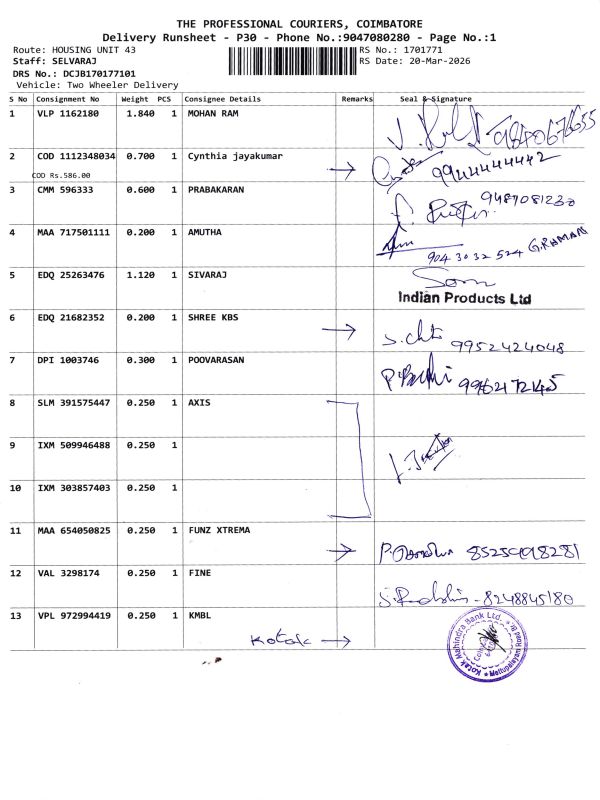 THE PROFESSIONAL COURIERS, COIMBATORE
Delivery Runsheet - P30 - Phone No.:9047080280 - Page No.:1
Route: HOUSING UNIT 43 RS No.: 1701771
Staff: SELVARAJ RS Date: 20-Mar-2026
DRS No.: DCJB170177101
Vehicle: Two Wheeler Delivery
S No Consignment No Weight PCS Consignee Details Remarks Seal & Signature
1 VLP 1162180 1.840 1 MOHAN RAM
2 COD 1112348034 0.700 1 Cynthia jayakumar 9944444442
COD Rs.586.00
3 CMM 596333 0.600 1 PRABAKARAN 9487081230
4 MAA 717501111 0.200 1 AMUTHA
904 30 32 524 G.RAMAN
5 EDQ 25263476 1.120 1 SIVARAJ
Indian Products Ltd
6 EDQ 21682352 0.200 1 SHREE KBS
9952424048
7 DPI 1003746 0.300 1 POOVARASAN
9962172145
8 SLM 391575447 0.250 1 AXIS
9 IXM 509946488 0.250 1
10 IXM 303857403 0.250 1
11 MAA 654050825 0.250 1 FUNZ XTREMA
8525998281
12 VAL 3298174 0.250 1 FINE
8248845180
13 VPL 972994419 0.250 1 KMBL
Kotak
Kotak Mahindra Bank Ltd. Mettupalayam Road Br.